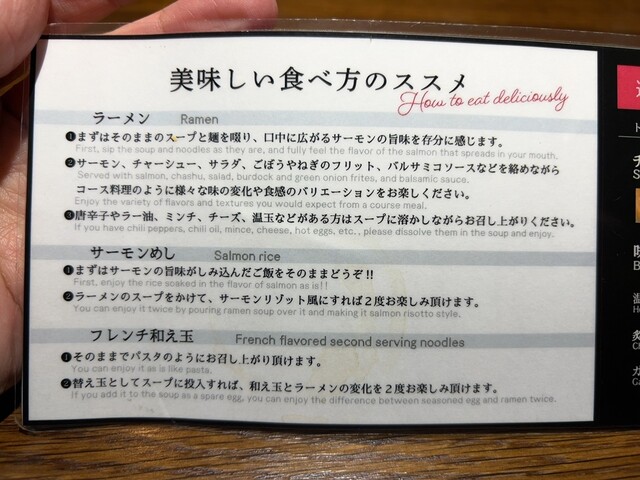 美味しい食べ方のススメ
How to eat deliciously
ラーメン Ramen
❶まずはそのままのスープと麺を啜り、口中に広がるサーモンの旨味を存分に感じます。
First, sip the soup and noodles as they are, and fully feel the flavor of the salmon that spreads in your mouth.
❷サーモン、チャーシュー、サラダ、ごぼうやねぎのフリット、バルサミコソースなどを絡めながら
Served with salmon, chashu, salad, burdock and green onion frites, and balsamic sauce.
コース料理のように様々な味の変化や食感のバリエーションをお楽しください。
Enjoy the variety of flavors and textures you would expect from a course meal.
❸唐辛子やラー油、ミンチ、チーズ、温玉などがある方はスープに溶かしながらお召し上がりください。
If you have chili peppers, chili oil, mince, cheese, hot eggs, etc., please dissolve them in the soup and enjoy.
サーモンめし Salmon rice
❶まずはサーモンの旨味がしみ込んだご飯をそのままどうぞ!!
First, enjoy the rice soaked in the flavor of salmon as is!!
❷ラーメンのスープをかけて、サーモンリゾット風にすれば2度お楽しみ頂けます。
You can enjoy it twice by pouring ramen soup over it and making it salmon risotto style.
フレンチ和え玉 French flavored second serving noodles
❶そのままでパスタのようにお召し上がり頂けます。
You can enjoy it as is like pasta.
❷替え玉としてスープに投入すれば、和え玉とラーメンの変化を2度お楽しみ頂けます。
If you add it to the soup as a spare egg, you can enjoy the difference between seasoned egg and ramen twice.